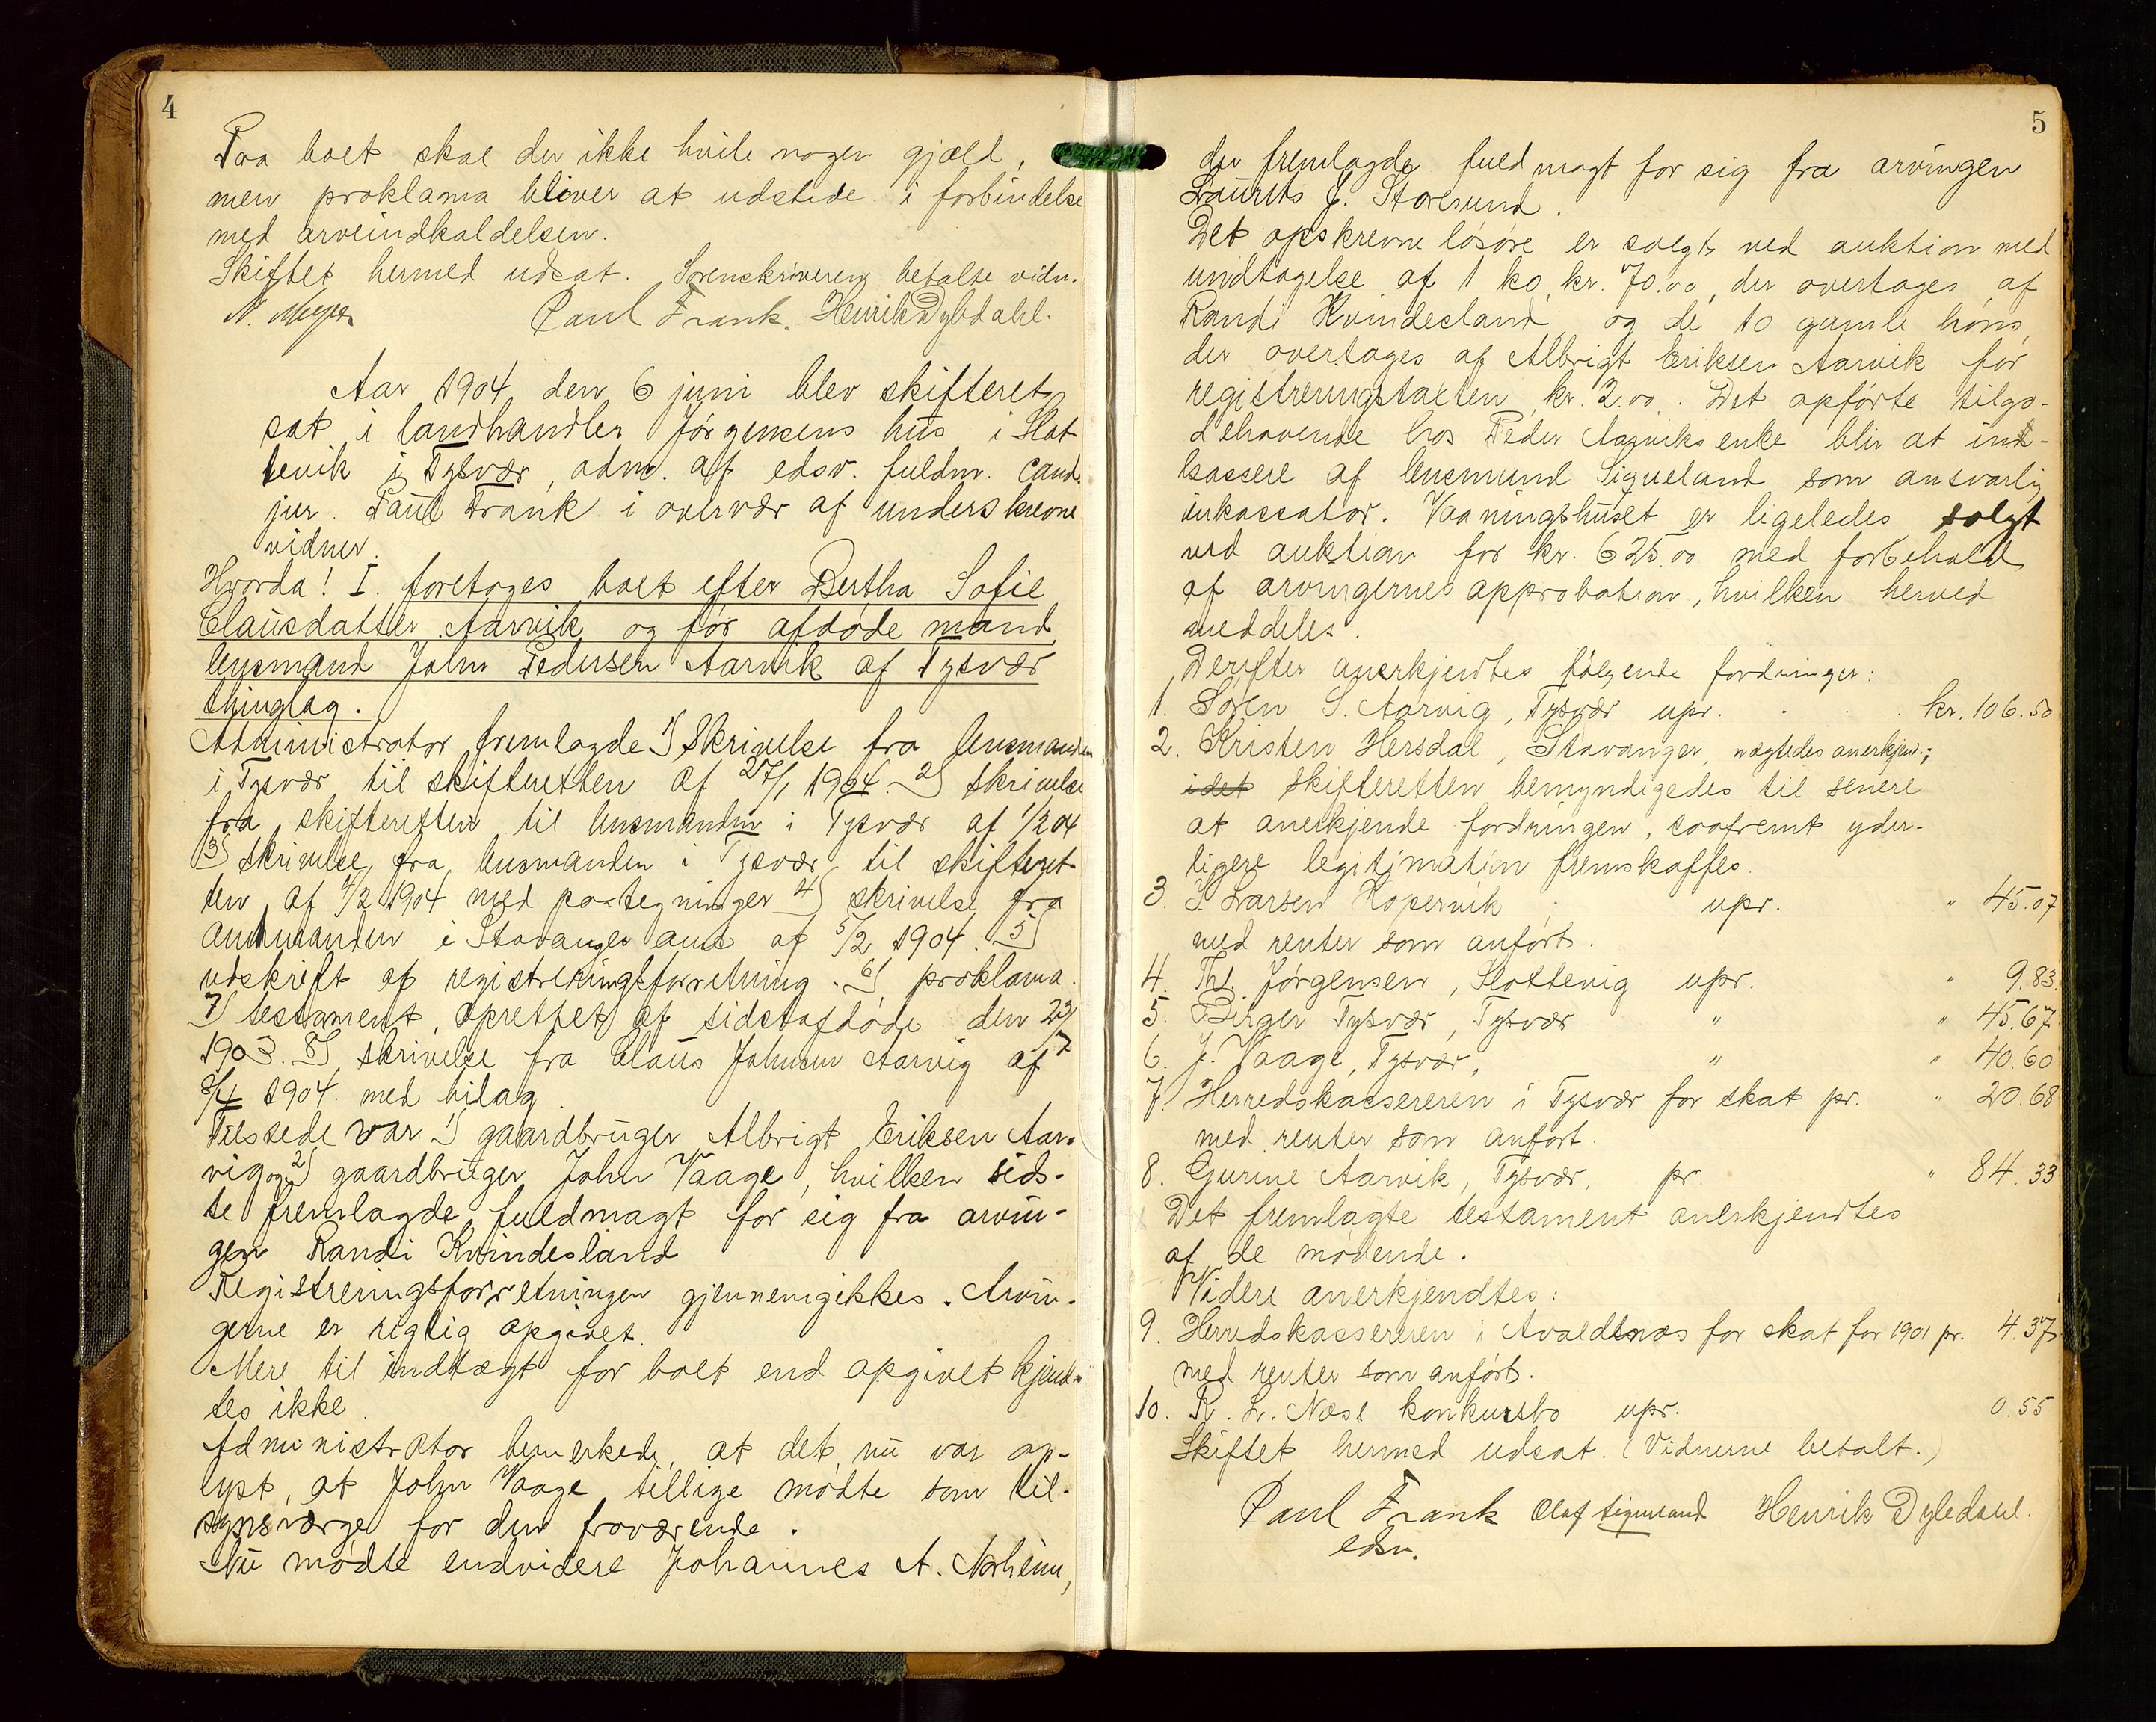 4
Paa boet skal der ikke hvile nogen gjæld,
men proklama bliver at udstede i forbindelse
med arveindkaldelsen.
Skiftet hermed udsat. Sorenskriveren betalte vidn.
N. Meyer Paul Frank. Henrik Dyledahl.
Aar 1904 den 6 juni blev skifteret
sat i landhandler Jørgensens hus i Slot
tevik i Tysvær, adm. af edsv. fuldm. cand.
jur. Paul Frank i overvær af underskrevne
vidner.
Hvorda! I. foretoges boet efter Bertha Sofie
Clausdatter Aarvik og før afdøde mand,
lensmand John Pedersen Aarvik af Tysvær
thinglag.
Administrator fremlagde 1) Skrivelse fra lensmanden
i Tysvær til skifteretten af 27/1 1904. 2) skrivelse
fra skifteretten til lensmanden i Tysvær af 1/2 04
3) skrivelse fra lensmanden i Tysvær til skifteret
ten af 4/2 1904 med paategninger 4) skrivelse fra
amtmanden i Stavanger amt af 5/2 1904. 5)
udskrift af registreringsforretning. 6) proklama.
7) testament, oprettet af sidstafdøde den 23/7
1903. 8) skrivelse fra Claus Johnsen Aarvig af
8/4 1904. med bilag.
Tilstede var 1) gaardbruger Albrigt Eriksen Aar-
vig og 2) gaardbruger John Vaage, hvilken sids-
te fremlagde fuldmagt for sig fra arvin-
gen Randi Kvindesland
Registreringsforretningen gjennemgikkes. Arvin-
gerne er rigtig opgivet.
Mere til indtægt for boet end opgivet kjend-
tes ikke.
Administrator bemerkede, at det nu var op-
lyst, at John Vaage tillige mødte som til-
synsværge for den fraværende.
Nu mødte endvidere Johannes A. Norheim,
5
der fremlagde fuldmagt for sig fra arvingen
Laurits J. Storesund.
Det opskrevne løsøre er solgt ved auktion med
undtagelse af 1 ko, kr. 70.00, der overtages af
Randi Kvindesland, og de 10 gamle høns,
der overtages af Albrigt Eriksen Aarvik for
registreringstaxten, kr. 2.00. Det opførte tilgo-
dehavende hos Peder Aarviks enke blir at ind-
kassere af lensmand Sigueland som ansvarlig
inkassator. Vaaningshuset er ligeledes solgt
ved auktion for kr. 625.00 med forbehold
af arvingernes approbation, hvilken herved
meddeles.
Derefter anerkjendtes følgende fordringer:
1. Søren S. Aarvig, Tysvær upr. . . . kr. 106.50
2. Kristen Hersdal, Stavanger, nægtedes anerkjend.;
idet skifteretten bemyndigedes til senere
at anerkjende fordringen, saafremt yder-
ligere legitimation fremskaffes.
3. S. Larsen Kopervik, upr. " 45.07
med renter som anført.
4. Th. Jørgensen, Slottevig upr. " 9.83.
5. Birger Tysvær, Tysvær " " 45.67
6. J. Vaage, Tysvær, " " 40.60
7. Herredskassereren i Tysvær for skat pr. " 20.68
med renter som anført.
8. Gurine Aarvik, Tysvær, pr. " 84.33
Det fremlagte testament anerkjendtes
af de mødende.
Videre anerkjendtes:
9. Herredskassereren i Avaldsnæs for skat for 1901 pr. 4.37
med renter som anført.
10. R. L. Næss konkursbo upr. 0.55
Skiftet hermed udsat. (Vidnerne betalt.)
Paul Frank Olaf Sigueland Henrik Dyledahl.
edsv.